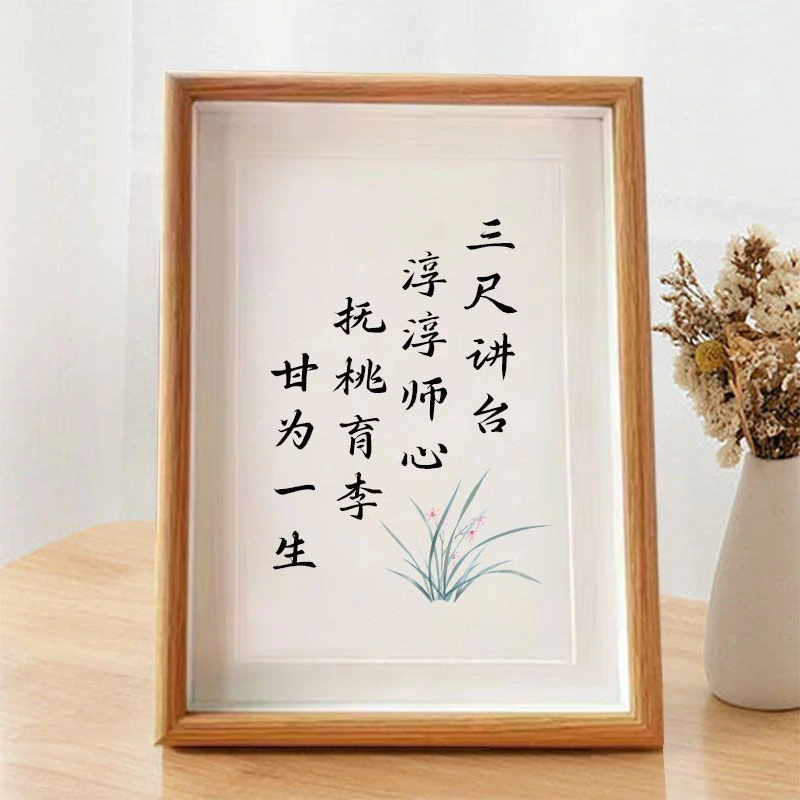 三尺讲台
淳淳师心
抚桃育李
甘为一生